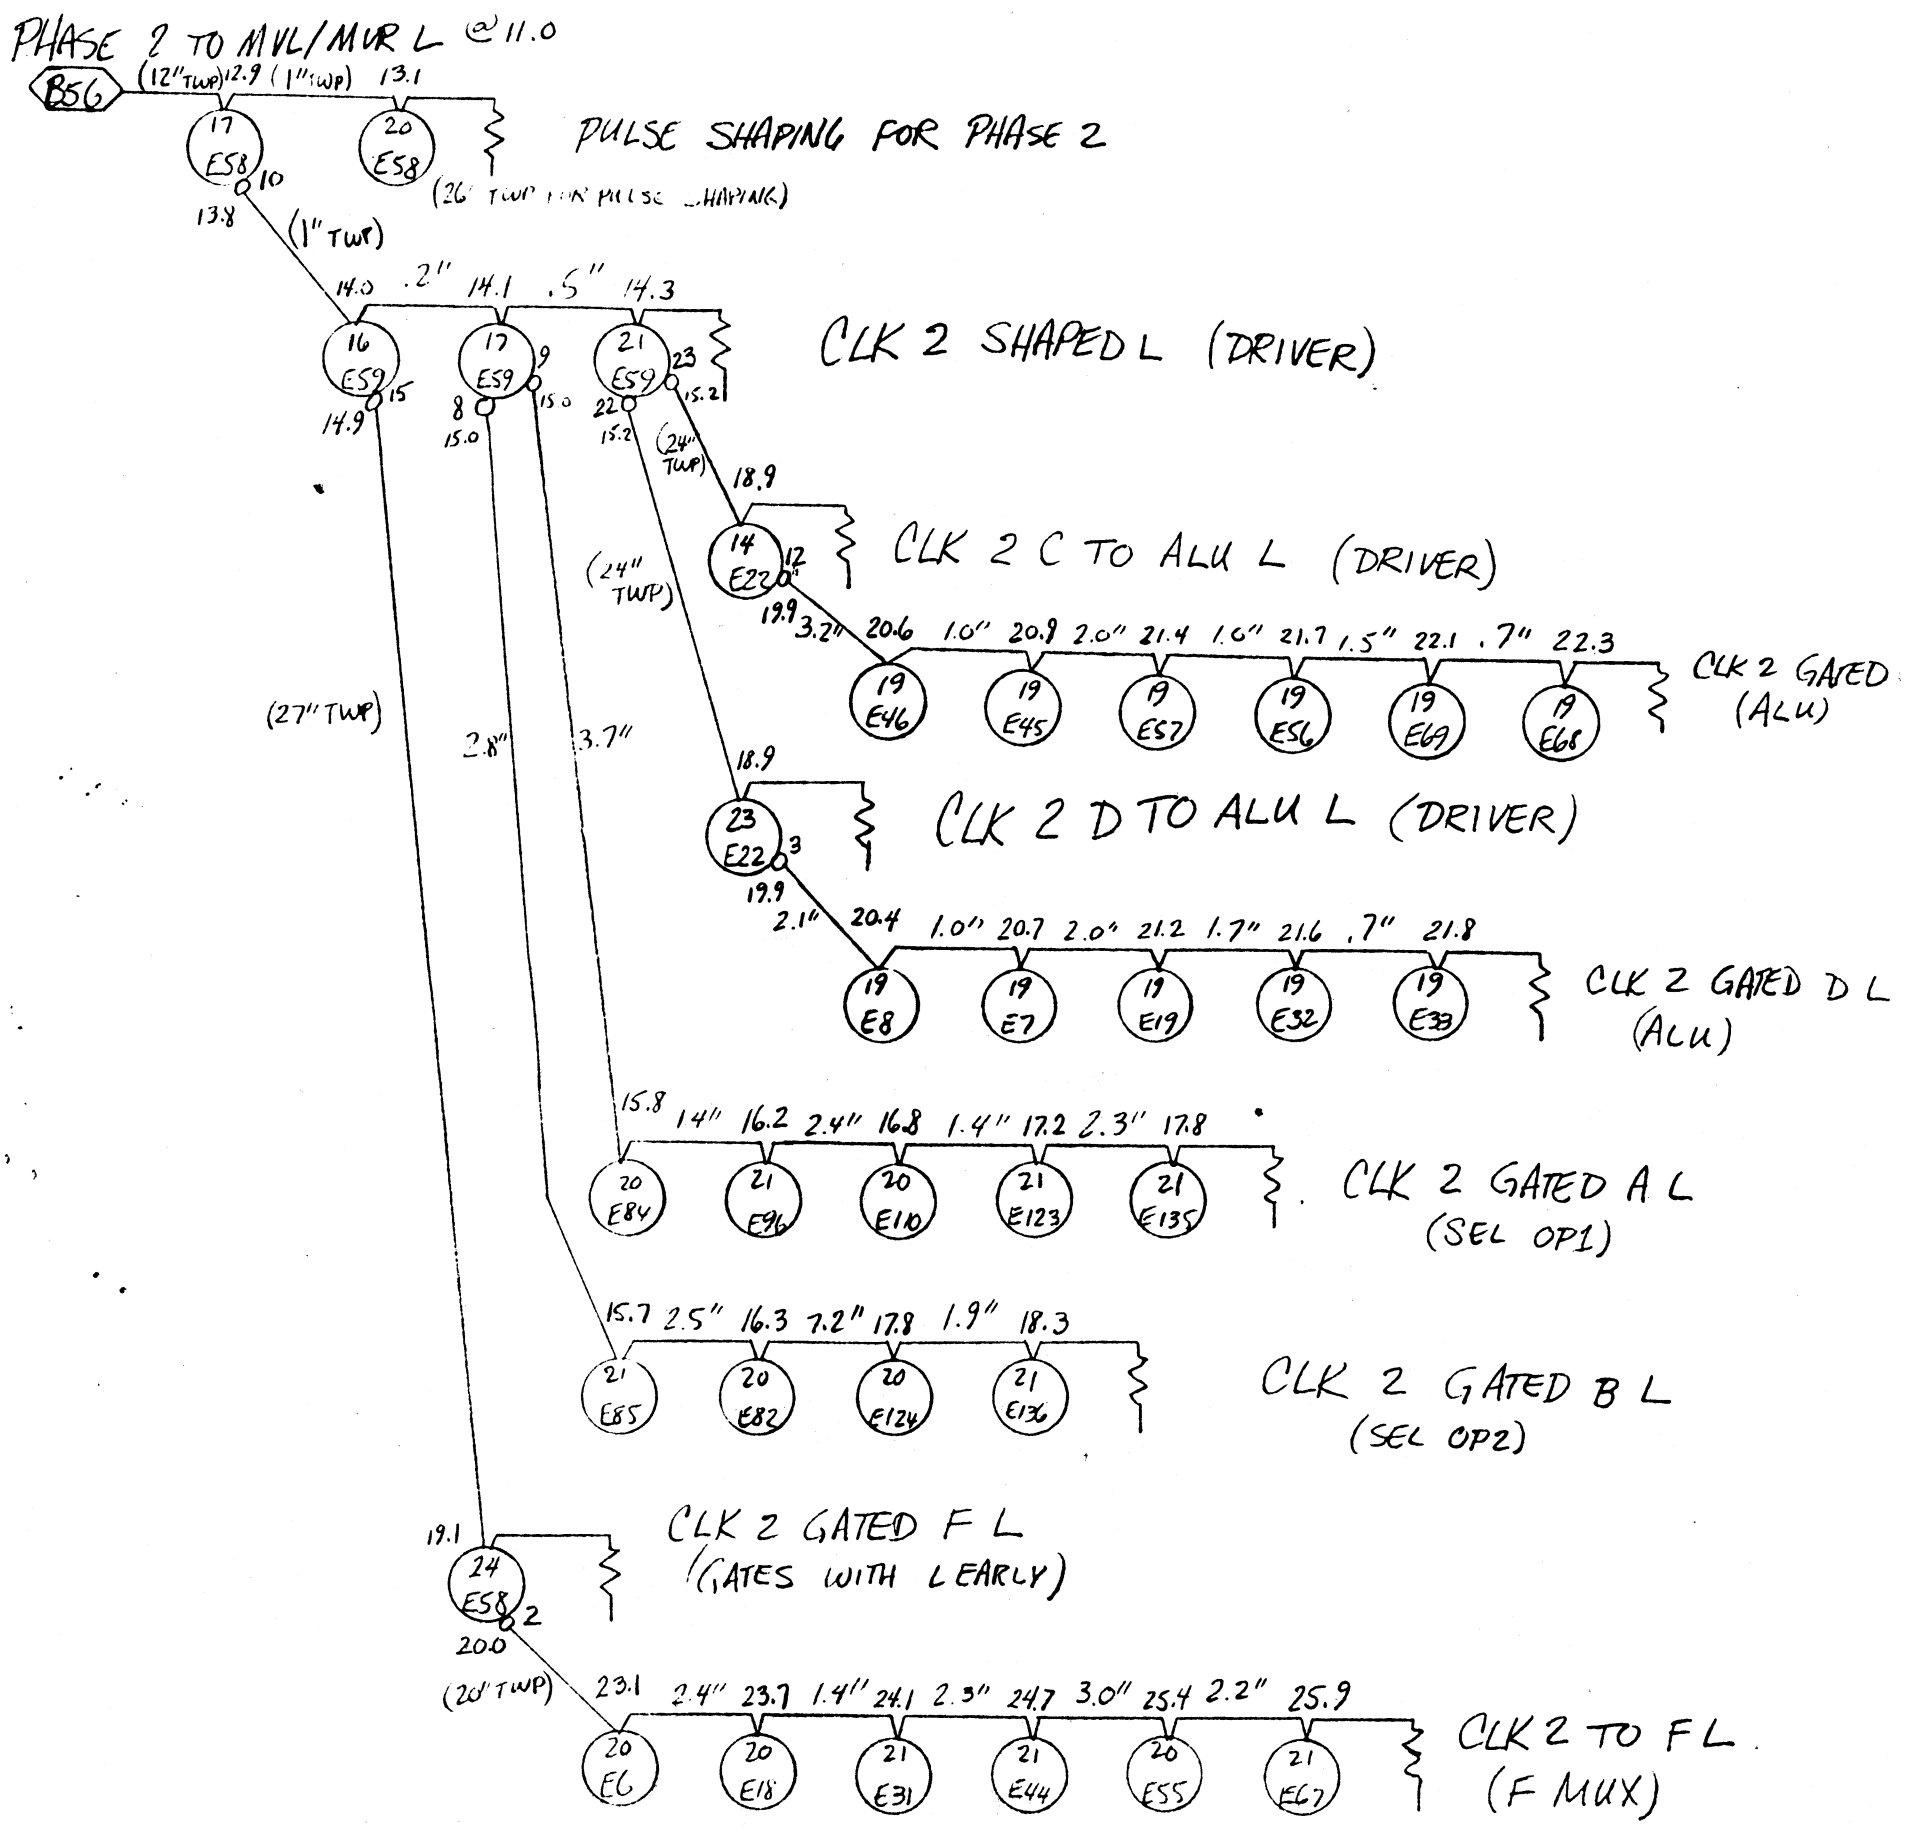 PHASE 2 TO MVL/MVR L @ 11.0
B56 (12" TWP) 12.9 (1" TWP) 13.1
17 E58 10 13.8
20 E58
PULSE SHAPING FOR PHASE 2
(26" TWP FOR PULSE SHAPING)
(1" TWP)
14.0 .2" 14.1 .5" 14.3
16 E59 15 14.9
17 E59 9 15.0 8 15.0
21 E59 23 15.2 22 15.2
CLK 2 SHAPED L (DRIVER)
(24" TWP)
18.9
14 E22 12 19.9
CLK 2 C TO ALU L (DRIVER)
(24" TWP)
3.2" 20.6 1.0" 20.9 2.0" 21.4 1.0" 21.7 1.5" 22.1 .7" 22.3
19 E46
19 E45
19 E57
19 E56
19 E69
19 E68
CLK 2 GATED
(ALU)
(27" TWP)
2.8"
3.7"
18.9
23 E22 3 19.9
CLK 2 D TO ALU L (DRIVER)
2.1" 20.4 1.0" 20.7 2.0" 21.2 1.7" 21.6 .7" 21.8
19 E8
19 E7
19 E19
19 E32
19 E33
CLK 2 GATED D L
(ALU)
15.8 14" 16.2 2.4" 16.8 1.4" 17.2 2.3" 17.8
20 E84
21 E96
20 E110
21 E123
21 E135
CLK 2 GATED A L
(SEL OP1)
15.7 2.5" 16.3 7.2" 17.8 1.9" 18.3
21 E85
20 E82
20 E124
21 E136
CLK 2 GATED B L
(SEL OP2)
19.1
24 E58 2 20.0
CLK 2 GATED F L
(GATES WITH L EARLY)
(20" TWP) 23.1 2.4" 23.7 1.4" 24.1 2.3" 24.7 3.0" 25.4 2.2" 25.9
20 E6
20 E18
21 E31
21 E44
20 E55
21 E67
CLK 2 TO F L
(F MUX)